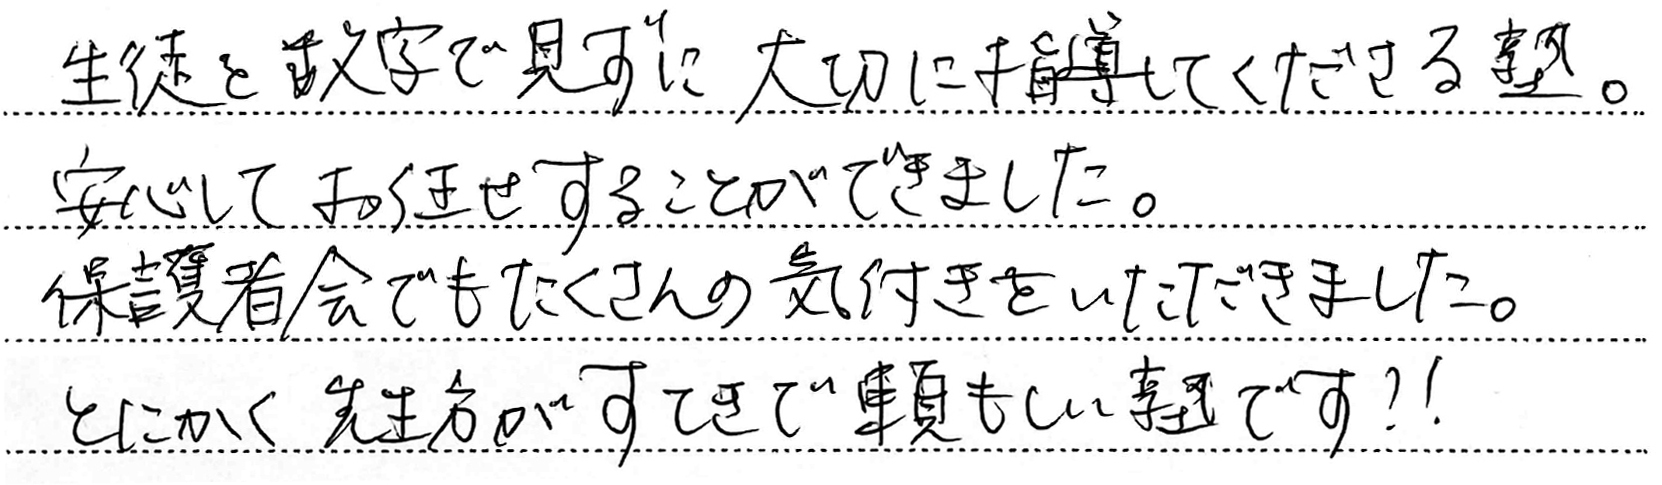 生徒を数字で見ずに大切に指導してくださる塾。
安心してお任せすることができました。
保護者会でもたくさんの気付きをいただきました。
とにかく先生方がすてきで頼もしい塾です!!